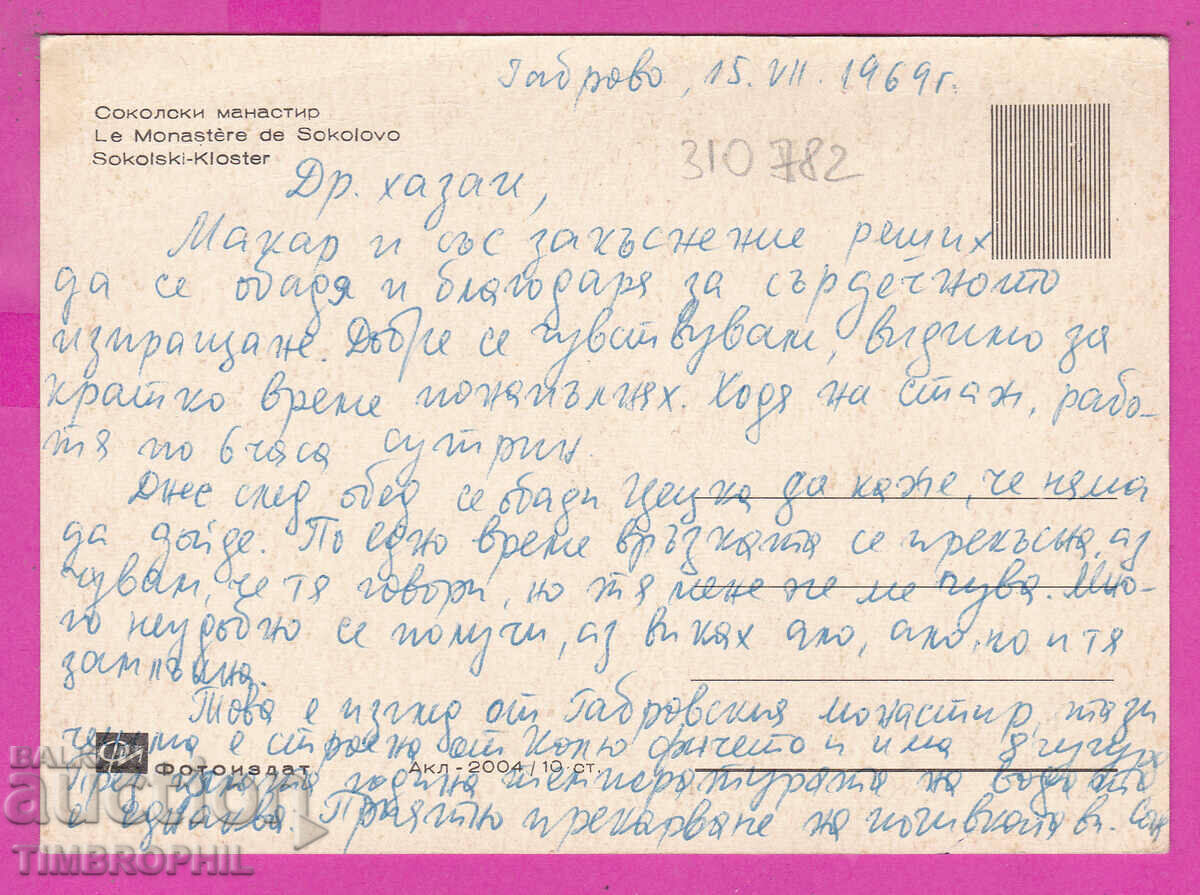 Габрово, 15. VII. 1969 г.
Соколски манастир
Le Monastère de Sokolovo
Sokolski-Kloster
310 782
Др. хазаи,
Макар и със закъснение реших
да се обадя и благодаря за сърдечното
изпращане. Добре се чувствувам, видимо за
кратко време понапълнях. Ходя на стаж, рабо-
тя по 6 часа сутрин
Днес след обед се обади Цецка да каже, че няма
да дойде. По едно време връзката се прекъсна, аз
чувам, че тя говори, но тя мене не ме чува. Мно-
го неудобно се получи, аз виках ало, ало, но и тя
замлъкна.
Това е изглед от Габровския монастир, тази
чешма е строена от Колю Фичето и има 8 чучура
През цялата година температурата на водата
е еднаква. Приятно прекарване на почивката ви.
Фотоиздат
Акл-2004/10 ст.
BALK
auction
TIMBROPHIL